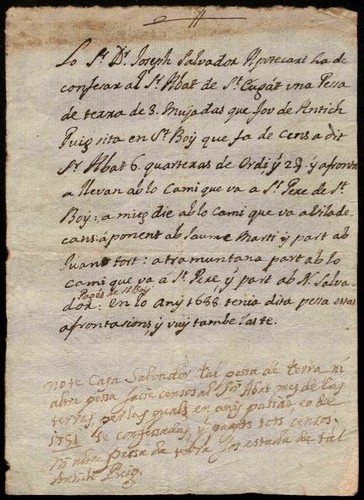 Lo Sr. Dr. Joseph Salvador Apotecari ha de
confesar al Sr. Abat de St. Cugat una Pessa
de terra de 8. Mujadas que fou de Antich
Puig sita en St. Boy que fa de cens a dit
Sr. Abat 6. quarteras de Ordi, y 2 y afronta
a llevan ab lo Cami que va a St. Pere de St.
Boy: a mig die ab lo cami que va a Vilade
cans: á ponent ab Jaume Marti y part ab
Juan tort: a tramuntana part ab lo
cami que va a St. Pere y part ab N. Salva-
Pages de St. Boy
dor: En lo Any 1688 tenia dita pessa estas
afrontasions y vuy tambe las te.
note Casa Salvador tal pessa de terra ni
altra pessa facie censos al Sr. Abat mes de las
terras, per las quals en any
1751 confessadas, y tots censos.
pessa de terra de tal
Antich Puig.